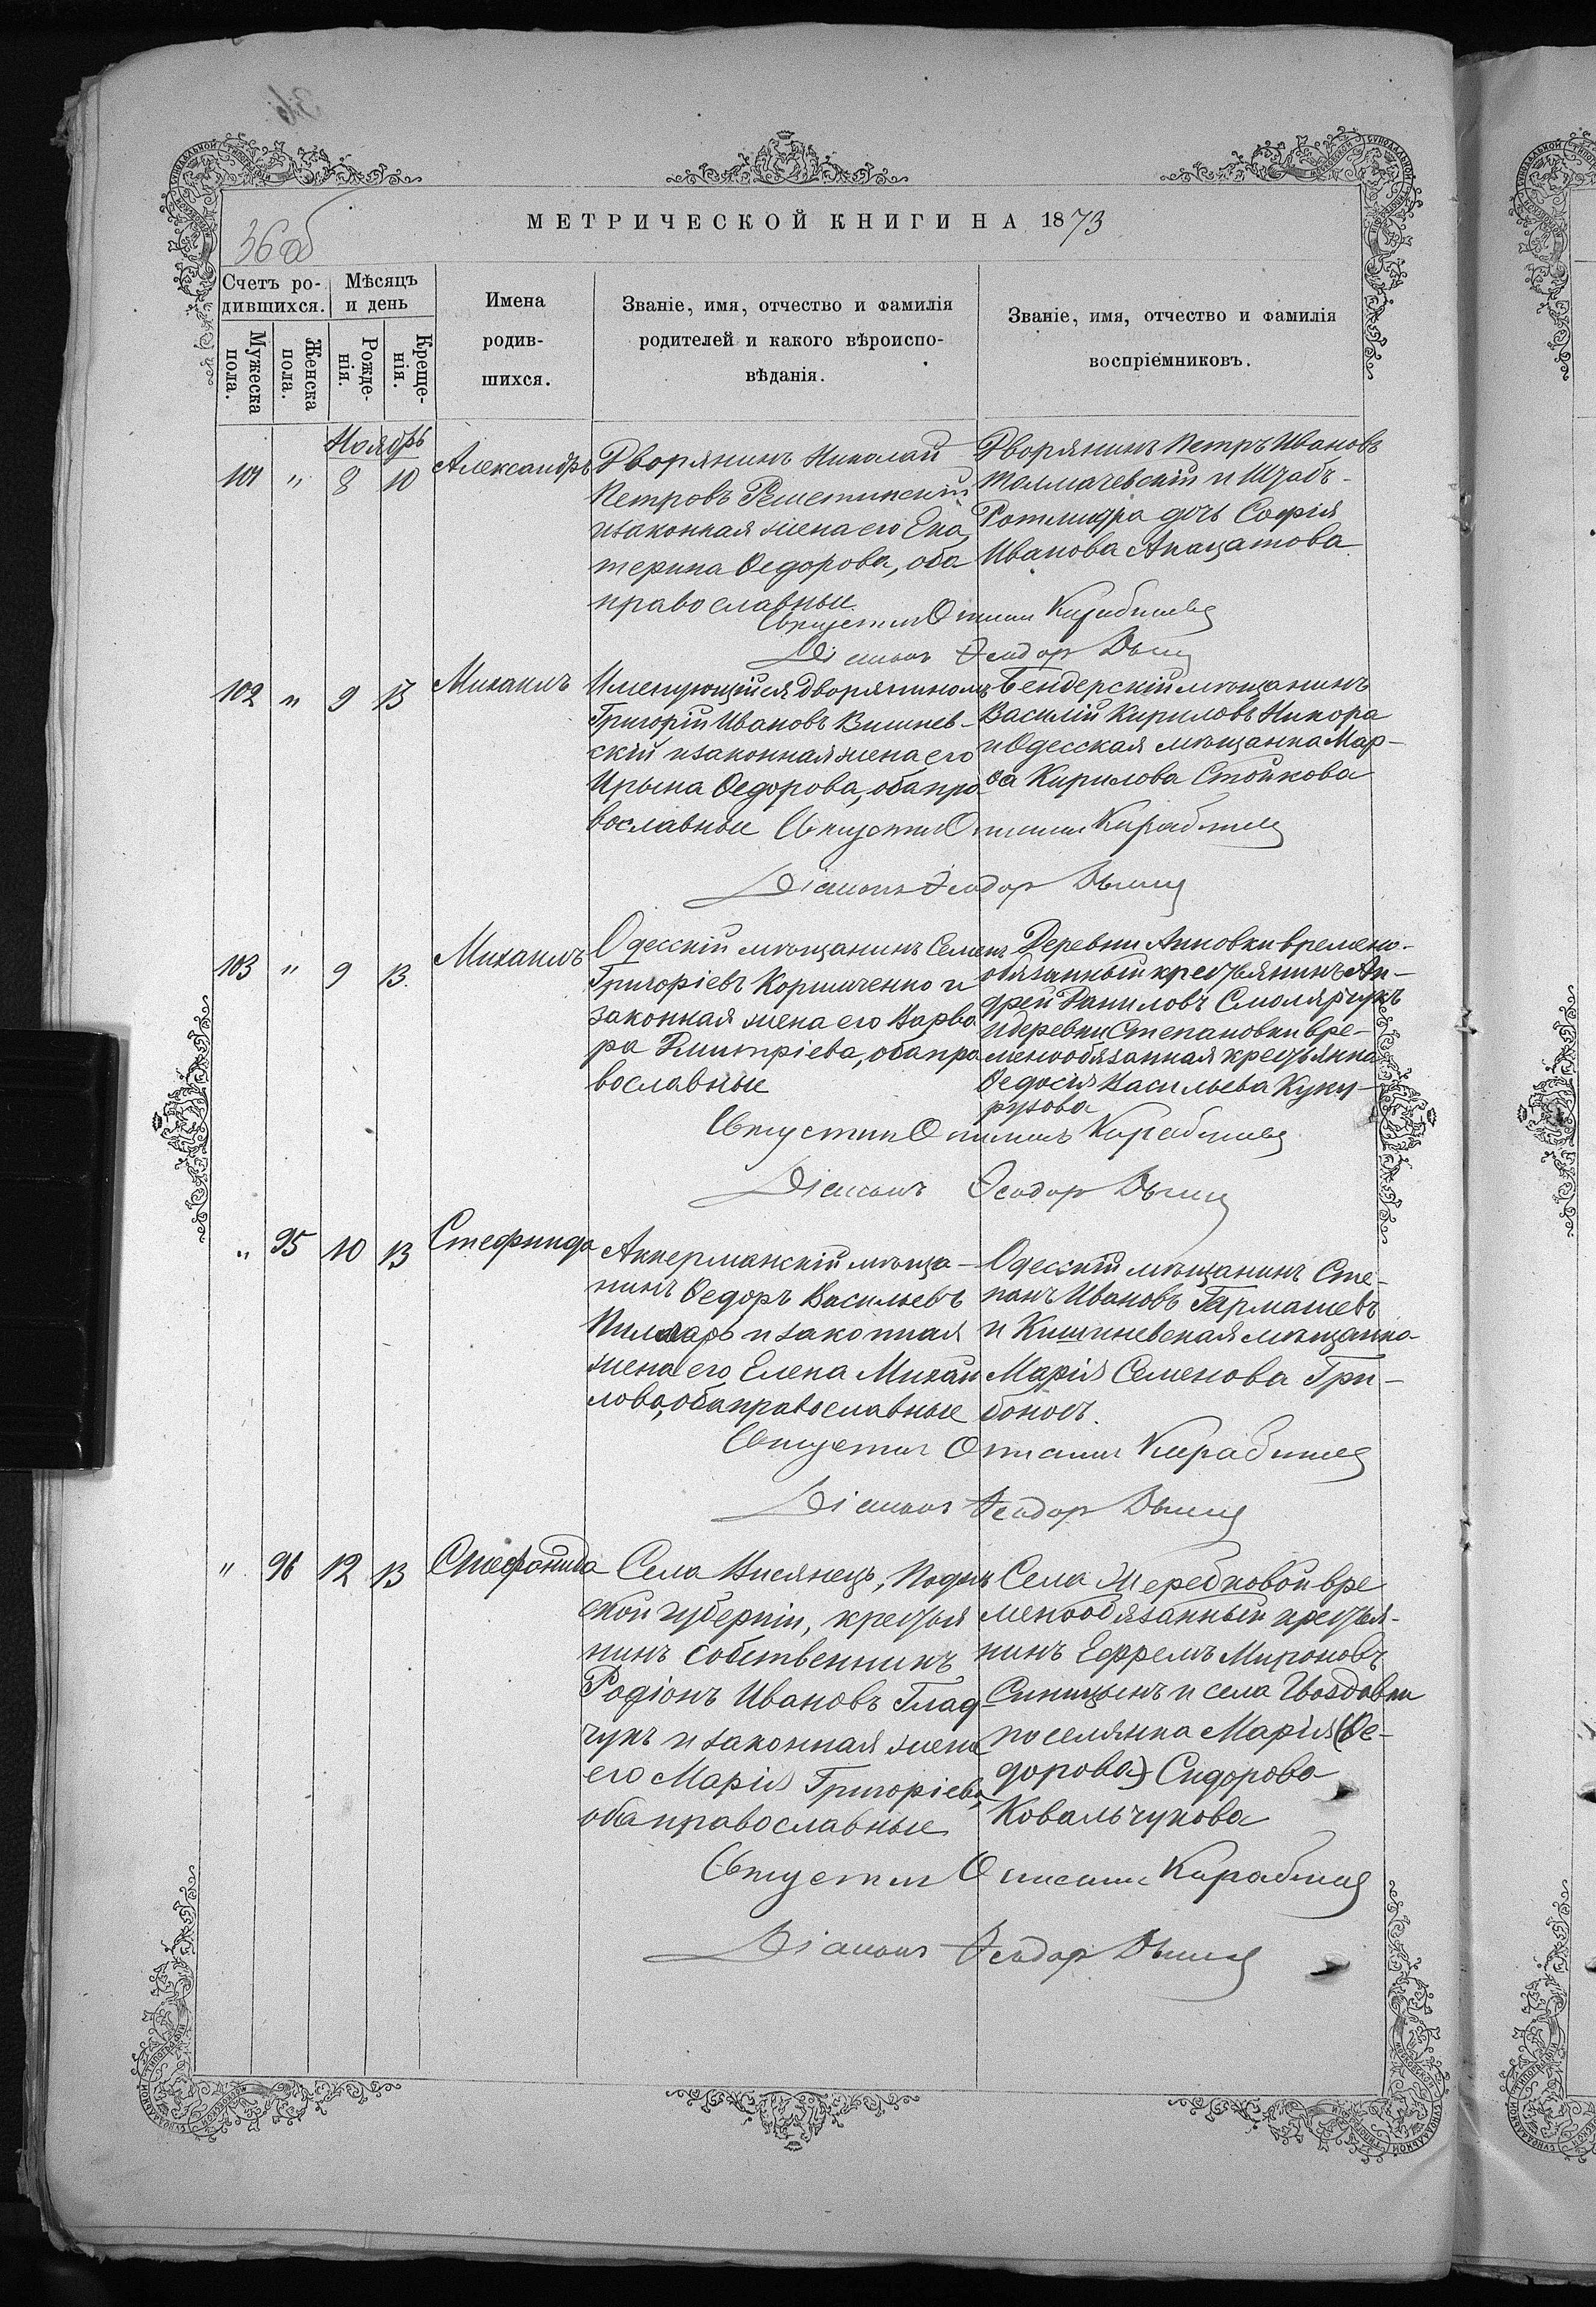 36 об
МЕТРИЧЕСКОЙ КНИГИ НА 1873
Счетъ ро-
дившихся.
Мѣсяцъ
и день
Мужеска
пола.
Женска
пола.
Рожде-
нія.
Креще-
нія.
Имена
родив-
шихся.
Званіе, имя, отчество и фамилія
родителей и какого вѣроиспо-
вѣданія.
Званіе, имя, отчество и фамилія
воспріемниковъ.
Ноябрь
101 " 8 10
Александръ
Дворянинъ Николай
Петровъ Решетинскій
и законная жена его Ека
терина Ѳедорова, оба
православные
Дворянинъ Петръ Ивановъ
Толмачевскій и Штабъ-
Ротмистра дочь Софія
Иванова
Діаконъ Ѳеодор
102 " 9 13
Михаилъ
Именующійся дворяниномъ
Григорій Ивановъ Вишнев-
скій и законная жена его
Ирына Ѳедорова, оба пра
вославные
Бендерскій мѣщанинъ
Василій Кириловъ Никора
и Одесская мѣщанка Мар-
ѳа Кирилова Стойкова
Діаконъ Ѳеодор
103 " 9 13.
Михаилъ
Одесскій мѣщанинъ Семенъ
Григоріевъ Корниченко и
законная жена его Варва
ра Дмитріева, оба пра
вославные
Деревни Анновки времено-
обязанный крестьянинъ Ан-
дрей Даниловъ Смолярчукъ
и деревни Степановки вре-
менообязанная крестьянка
Ѳедосія Васильева Куку-
рузова
Діаконъ Ѳеодор
" 95 10 13
Стефанида
Аккерманскій мѣща-
нинъ Ѳедоръ Васильевъ
и законная
жена его Елена Михаи
лова, оба православные
Одесскій мѣщанинъ Сте-
панъ Ивановъ Гармашевъ
и Кишиневская мѣщанка
Марія Семенова Гри-
боносъ.
Діаконъ Ѳеодор
" 96 12 13
Стефанида
Села Кисянецъ, Подоль
ской губерніи, крестья
нинъ собственникъ
Родіонъ Ивановъ Глад-
чукъ и законная жена
его Марія Григоріева,
оба православные
Села Жеребковой вре
менообязанный крестья-
нинъ Ефремъ Мироновъ
Синицынъ и села Гвоздавки
поселянка Марія (Ѳе-
дорова) Сидорова
Ковальчукова
Діаконъ Ѳеодор